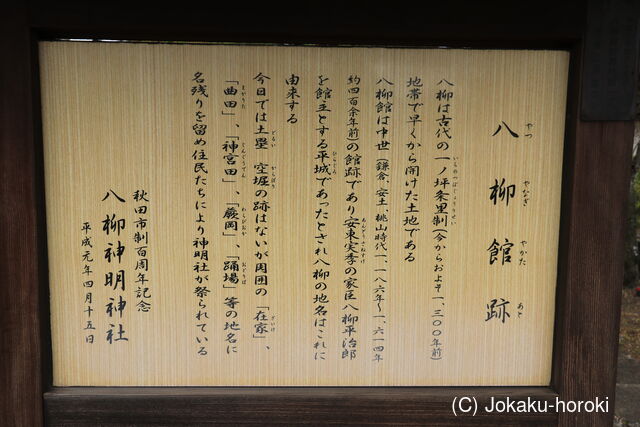 八柳館跡
やつ やなぎ やかた あと
八柳は古代の一ノ坪条里制(今からおよそ一、三〇〇年前)
地帯で早くから開けた土地である
八柳館は中世(鎌倉、安土、桃山時代一、一八六年～一、六一四年
約四百余年前)の館跡であり安東実季の家臣八柳平治郎
を館主とする平城であったとされ八柳の地名はこれに
由来する
今日では土塁 空堀の跡はないが周囲の「在家」、
「曲田」、「神宮田」、「蕨岡」、「踊場」等の地名に
名残りを留め住民たちにより神明社が祭られている
秋田市制百周年記念
八柳神明神社
平成元年四月十五日
(C) Jokaku-horoki